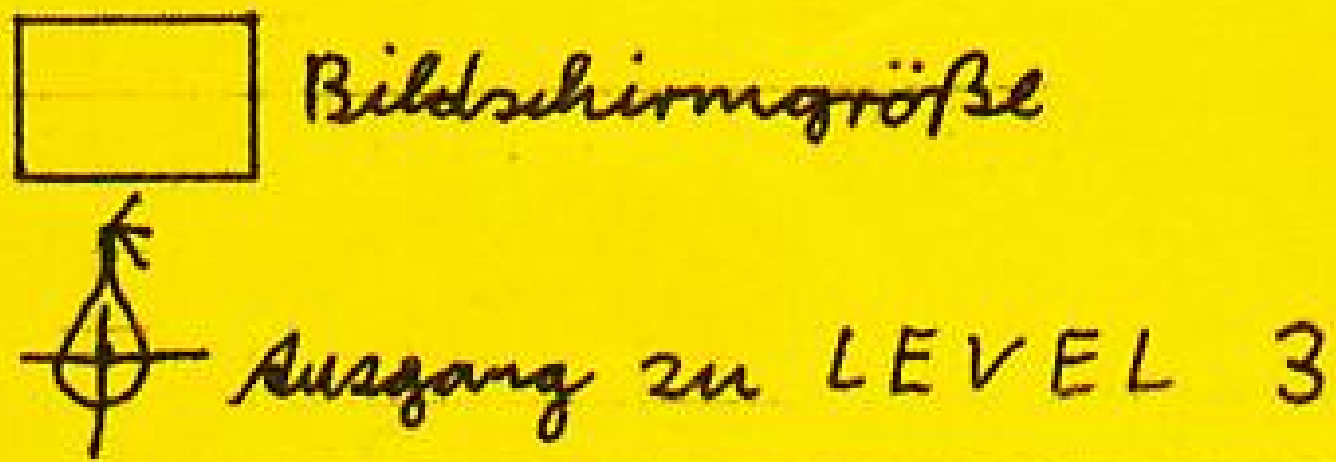 Bildschirmgröße
Ausgang zu LEVEL 3